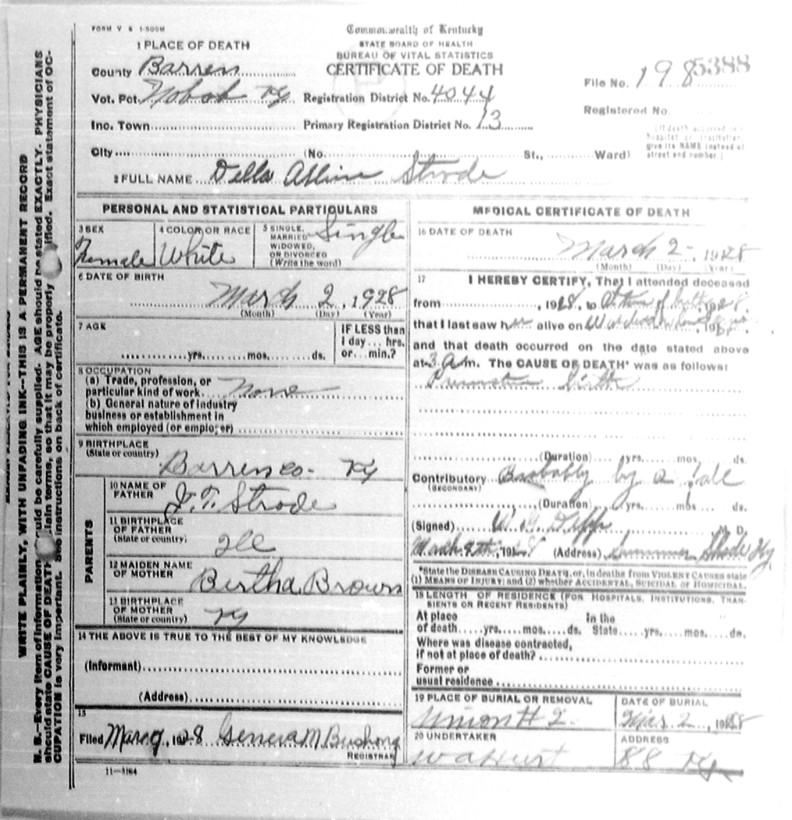 FORM V S 1-500M
Commonwealth of Kentucky
STATE BOARD OF HEALTH
BUREAU OF VITAL STATISTICS
CERTIFICATE OF DEATH
1 PLACE OF DEATH
County Barren
Vot. Pct. Nobob Ky Registration District No. 4044
File No. 198 5388
Inc. Town Primary Registration District No. 13
Registered No.
City (No. St., Ward)
(If death occurred in a hospital or institution, give its NAME instead of street and number.)
2 FULL NAME Della Strode
PERSONAL AND STATISTICAL PARTICULARS
3 SEX Female
4 COLOR OR RACE White
5 SINGLE, MARRIED WIDOWED, OR DIVORCED (Write the word) Single
6 DATE OF BIRTH
March 2, 1928
(Month) (Day) (Year)
7 AGE
yrs. mos. ds.
IF LESS than 1 day... hrs. or... min.?
8 OCCUPATION
(a) Trade, profession, or particular kind of work None
(b) General nature of industry business or establishment in which employed (or employer)
9 BIRTHPLACE
(State or country)
Barren co- Ky
PARENTS
10 NAME OF FATHER J. T. Strode
11 BIRTHPLACE OF FATHER (State or country) Ill
12 MAIDEN NAME OF MOTHER Bertha Brown
13 BIRTHPLACE OF MOTHER (State or country) Ky
14 THE ABOVE IS TRUE TO THE BEST OF MY KNOWLEDGE
(Informant)
(Address)
15
Filed Mar 9, 1928 Geneva M. Bushong
REGISTRAR
11-3184
MEDICAL CERTIFICATE OF DEATH
16 DATE OF DEATH
March 2-, 1928
(Month) (Day) (Year)
17 I HEREBY CERTIFY, That I attended deceased
from , 1928, to
that I last saw her alive on
and that death occurred on the date stated above
at 3 A.m. The CAUSE OF DEATH* was as follows:
birth
(Duration) yrs. mos. ds.
Contributory Probably by a fall
(SECONDARY)
(Duration) yrs. mos. ds.
(Signed) M. D.
March (Address) Summer Shade Ky
*State the DISEASE CAUSING DEATH, or, in deaths from VIOLENT CAUSES state
(1) MEANS OF INJURY; and (2) whether ACCIDENTAL, SUICIDAL or HOMICIDAL.
18 LENGTH OF RESIDENCE (FOR HOSPITALS, INSTITUTIONS, TRANSIENTS OR RECENT RESIDENTS)
At place of death yrs. mos. ds. In the State yrs. mos. ds.
Where was disease contracted, if not at place of death?
Former or usual residence
19 PLACE OF BURIAL OR REMOVAL
Union # 2
DATE OF BURIAL
Mar. 2, 1928
20 UNDERTAKER
W A Hurt
ADDRESS
88 Ky
WRITE PLAINLY, WITH UNFADING INK—THIS IS A PERMANENT RECORD
N. B.—Every item of information should be carefully supplied. AGE should be stated EXACTLY. PHYSICIANS
should state CAUSE OF DEATH in plain terms, so that it may be properly classified. Exact statement of OC-
CUPATION is very important. See instructions on back of certificate.